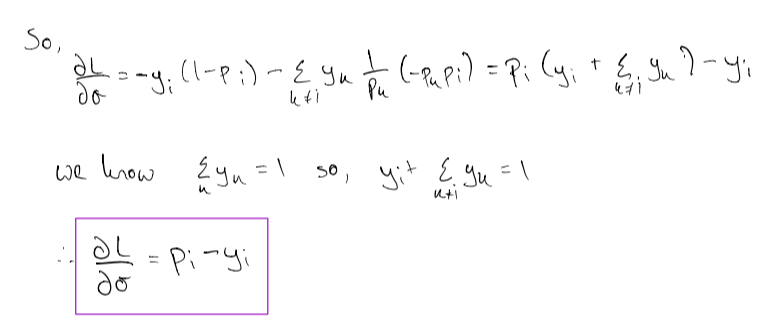 So,
∂L/∂σ = -yᵢ (1-pᵢ) - Σ_{k≠i} yₖ 1/pₖ (-pₖpᵢ) = pᵢ (yᵢ + Σ_{k≠i} yₖ) - yᵢ
we know Σₖ yₖ = 1 so, yᵢ + Σ_{k≠i} yₖ = 1
∴ ∂L/∂σ = pᵢ - yᵢ